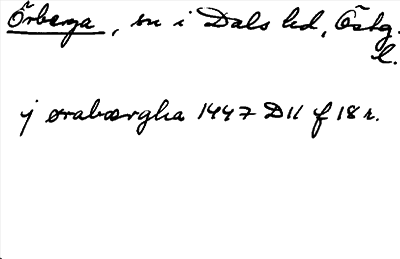 Örberga, sn i Dals hd, Östg.
l.
j ørabærgha 1447 D11 f 18 r.